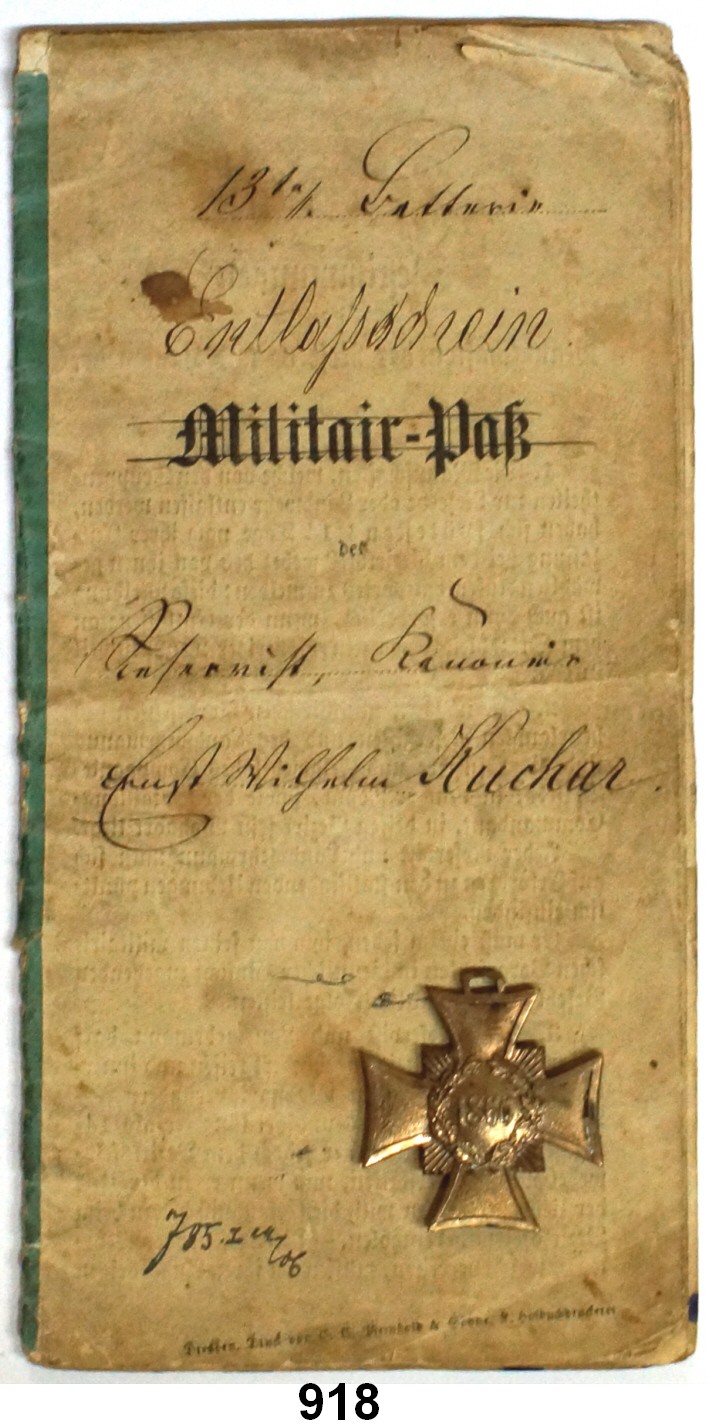 13te Batterie
Entlaßschein
Militair-Paß
des
Reservist, Kanonier
Ernst Wilhelm Kuchar.
1866
Dresden, Druck von C. C. Meinhold & Söhne, K. Hofbuchdruckerei
918